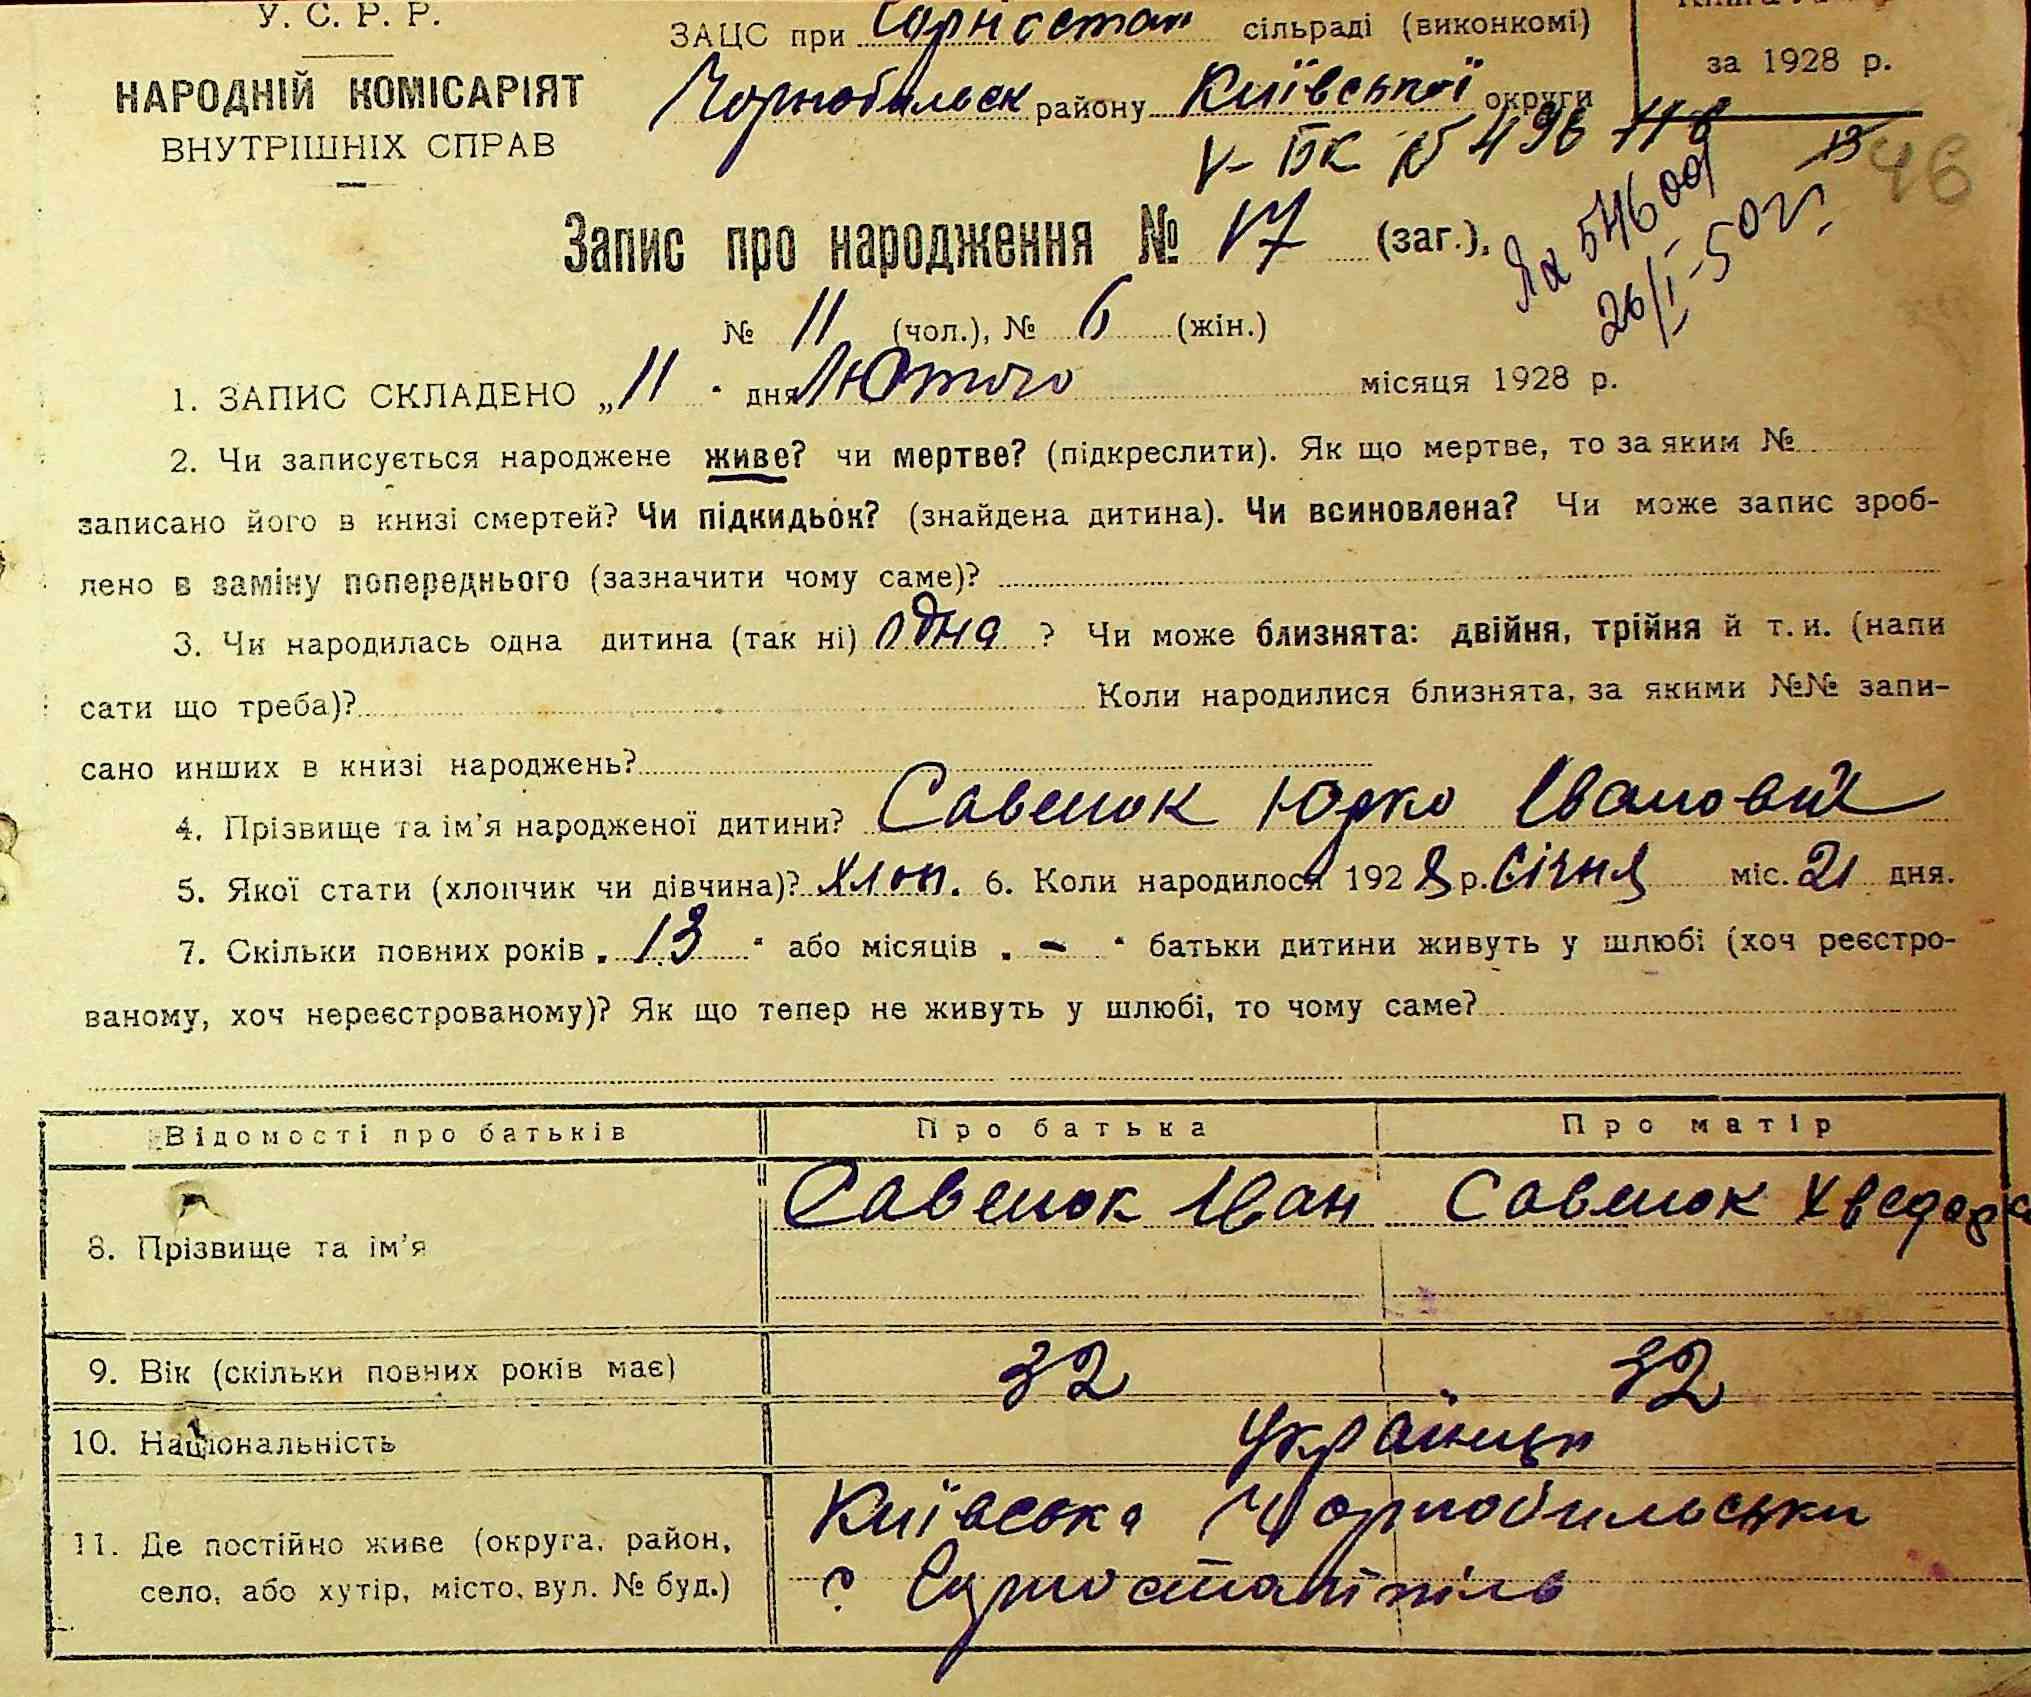 У. С. Р. Р.
НАРОДНІЙ КОМІСАРІЯТ
ВНУТРІШНІХ СПРАВ
ЗАЦС при Горностай сільраді (виконкомі)
Чорнобильск району Київської округи
за 1928 р.
V-БК № 496 718
13 46
Запис про народження № 17 (заг.),
26/I-50 г.
№ 11 (чол.), № 6 (жін.)
1. ЗАПИС СКЛАДЕНО „11" дня Лютого місяця 1928 р.
2. Чи записується народжене живе? чи мертве? (підкреслити). Як що мертве, то за яким №
записано його в книзі смертей? Чи підкидьок? (знайдена дитина). Чи всиновлена? Чи може запис зроб-
лено в заміну попереднього (зазначити чому саме)?
3. Чи народилась одна дитина (так ні) одна ? Чи може близнята: двійня, трійня й т. и. (напи
сати що треба)? Коли народилися близнята, за якими №№ запи-
сано инших в книзі народжень?
4. Прізвище та ім'я народженої дитини? Савенок Юрко Іванович
5. Якої стати (хлопчик чи дівчина)? хлоп. 6. Коли народилося 1928 р. Січня міс. 21 дня.
7. Скільки повних років „13" або місяців „-" батьки дитини живуть у шлюбі (хоч реєстро-
ваному, хоч нереєстрованому)? Як що тепер не живуть у шлюбі, то чому саме?
Відомості про батьків Про батька Про матір
8. Прізвище та ім'я Савенок Іван Савенок
9. Вік (скільки повних років має) 32 32
10. Національність Українці
11. Де постійно живе (округа, район, Київська Чорнобильськи
село, або хутір, місто, вул. № буд.) с Горностайпіль